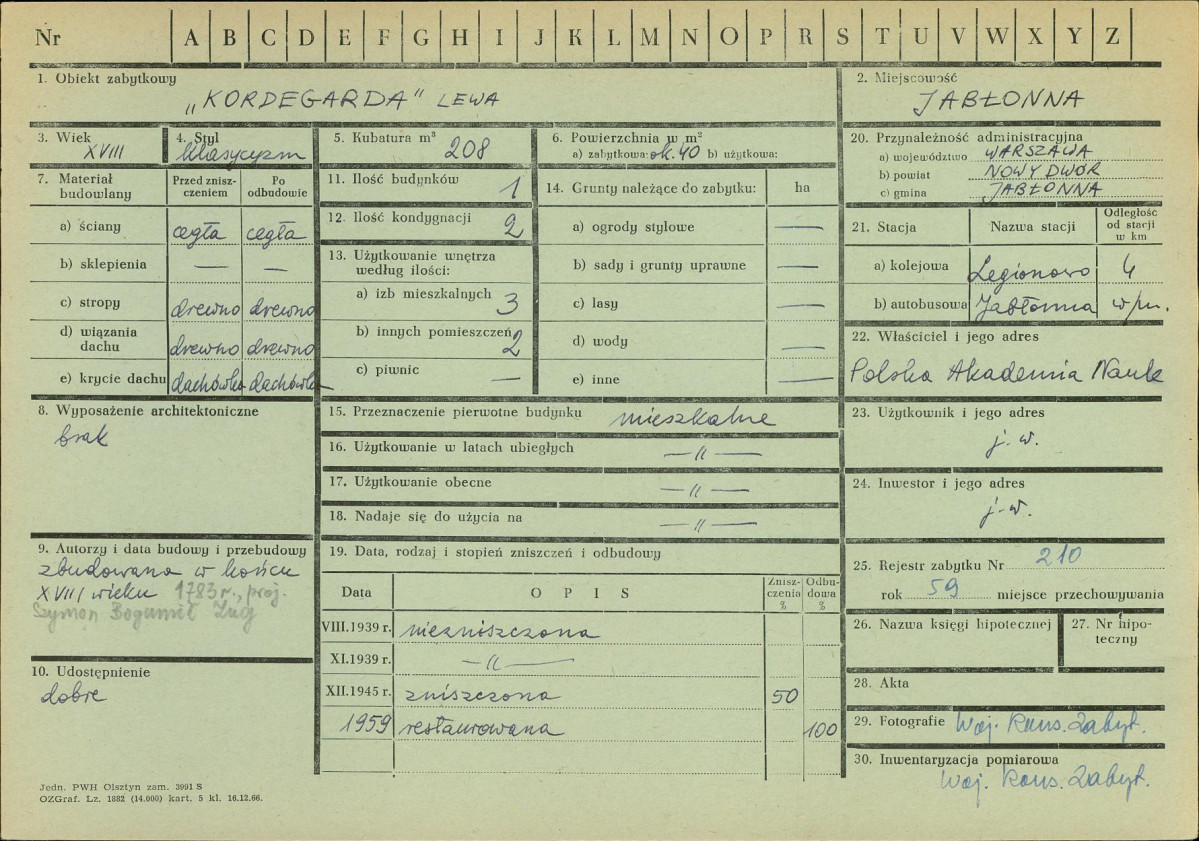 Nr A B C D E F G H I J K L M N O P R S T U V W X Y Z
1. Obiekt zabytkowy
„KORDEGARDA" LEWA
2. Miejscowość
JABŁONNA
3. Wiek
XVIII
4. Styl
klasycyzm
5. Kubatura m³
208
6. Powierzchnia w m²
a) zabytkowa: ok. 40 b) użytkowa:
7. Materiał budowlany
Przed zniszczeniem
Po odbudowie
a) ściany cegła cegła
b) sklepienia — —
c) stropy drewno drewno
d) wiązania dachu drewno drewno
e) krycie dachu dachówka dachówka
8. Wyposażenie architektoniczne
brak
9. Autorzy i data budowy i przebudowy
zbudowana w końcu
XVIII wieku 1783 r., proj.
Szymon Bogumił Zug
10. Udostępnienie
dobre
11. Ilość budynków 1
12. Ilość kondygnacji 2
13. Użytkowanie wnętrza
według ilości:
a) izb mieszkalnych 3
b) innych pomieszczeń 2
c) piwnic —
14. Grunty należące do zabytku: ha
a) ogrody stylowe —
b) sady i grunty uprawne —
c) lasy —
d) wody —
e) inne —
15. Przeznaczenie pierwotne budynku mieszkalne
16. Użytkowanie w latach ubiegłych —〃—
17. Użytkowanie obecne —〃—
18. Nadaje się do użycia na —〃—
19. Data, rodzaj i stopień zniszczeń i odbudowy
Data OPIS Zniszczenia % Odbudowa %
VIII.1939 r. niezniszczona
XI.1939 r. —〃—
XII.1945 r. zniszczona 50
1959 restaurowana 100
20. Przynależność administracyjna
a) województwo WARSZAWA
b) powiat NOWY DWÓR
c) gmina JABŁONNA
21. Stacja Nazwa stacji Odległość od stacji w km
a) kolejowa Legionowo 4
b) autobusowa Jabłonna w/m.
22. Właściciel i jego adres
Polska Akademia Nauk
23. Użytkownik i jego adres
j. w.
24. Inwestor i jego adres
j. w.
25. Rejestr zabytku Nr 210
rok 59 miejsce przechowywania
26. Nazwa księgi hipotecznej
27. Nr hipoteczny
28. Akta
29. Fotografie Woj. Kons. Zabyt.
30. Inwentaryzacja pomiarowa
Woj. Kons. Zabyt.
Jedn. PWH Olsztyn zam. 3991 S
OZGraf. Lz. 1882 (14.000) kart. 5 kl. 16.12.66.